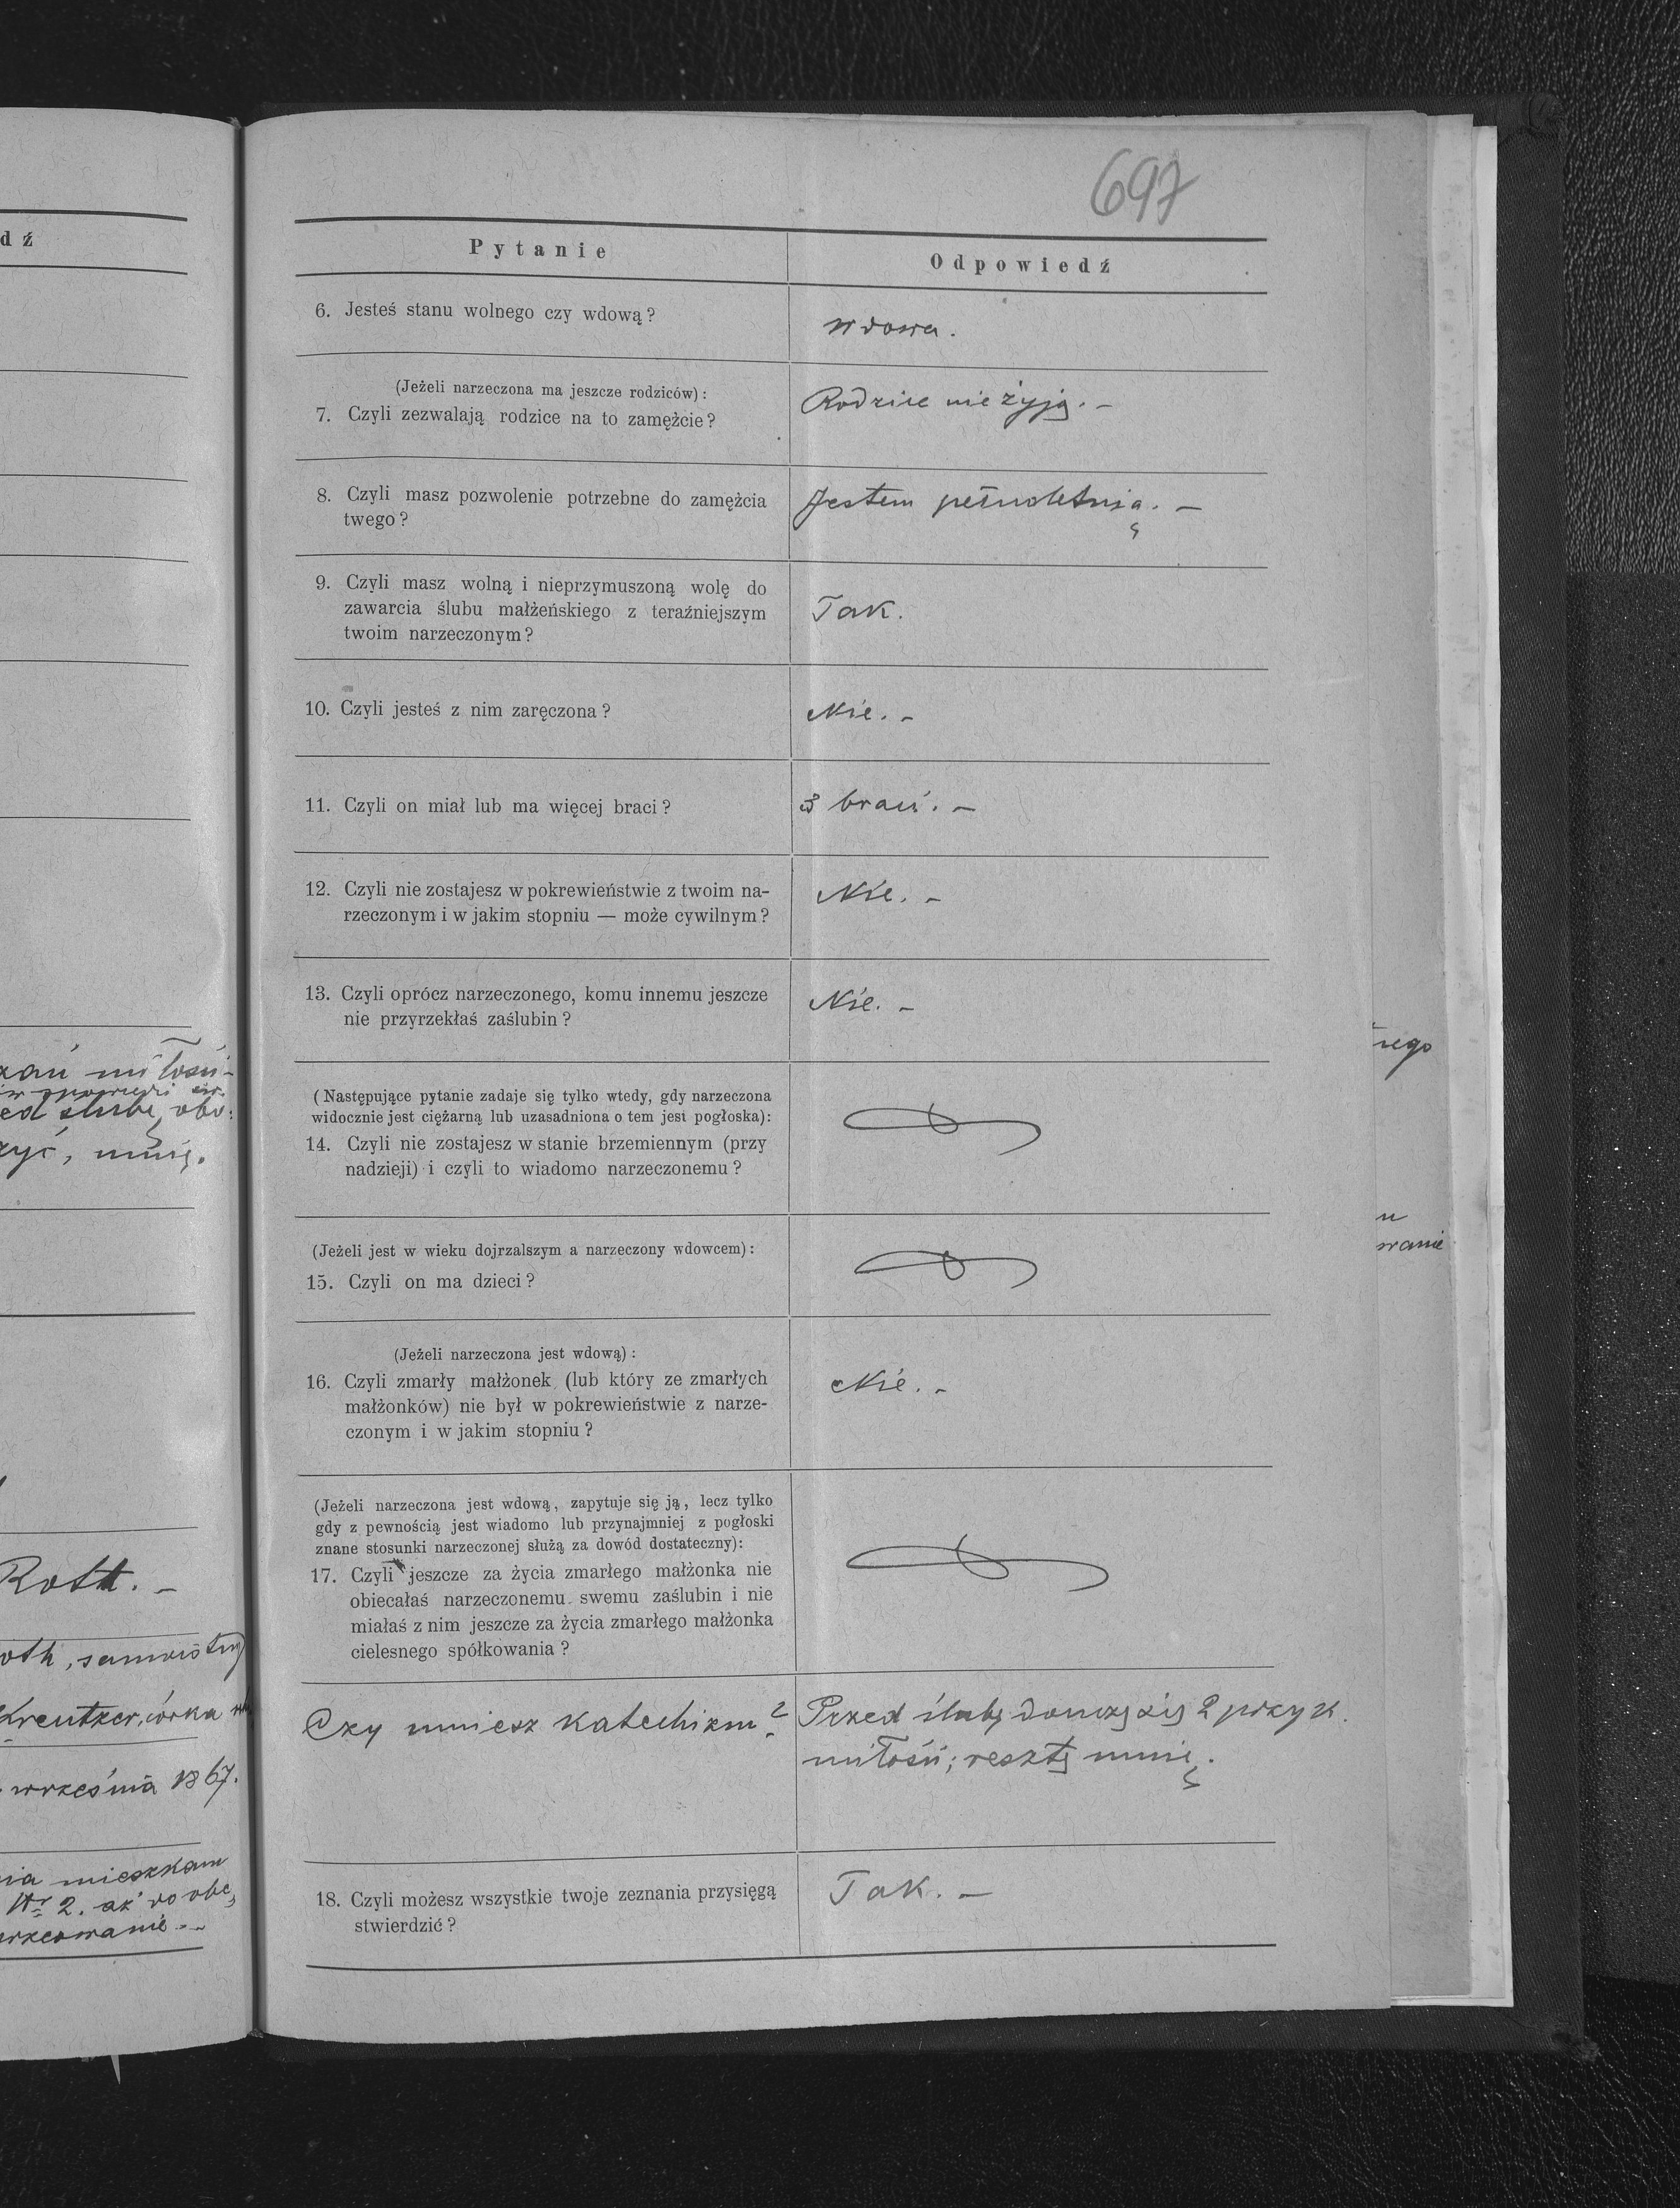 dź
zań miłości
w spowiedzi św.
ed ślubę, obo:
zyć, umię.
Roth. –
oth, samoistny
Kreutzer, córka
września 1867.
nia mieszkam
Nr 2. aż do obe,
697
Pytanie
Odpowiedź
6. Jesteś stanu wolnego czy wdową?
wdowa.
(Jeżeli narzeczona ma jeszcze rodziców):
7. Czyli zezwalają rodzice na to zamężcie?
Rodzice nie żyją. –
8. Czyli masz pozwolenie potrzebne do zamężcia
twego?
Jestem pełnoletnią. –
9. Czyli masz wolną i nieprzymuszoną wolę do
zawarcia ślubu małżeńskiego z teraźniejszym
twoim narzeczonym?
Tak.
10. Czyli jesteś z nim zaręczona?
Nie. –
11. Czyli on miał lub ma więcej braci?
3 braci. –
12. Czyli nie zostajesz w pokrewieństwie z twoim na-
rzeczonym i w jakim stopniu — może cywilnym?
Nie. –
13. Czyli oprócz narzeczonego, komu innemu jeszcze
nie przyrzekłaś zaślubin?
Nie. –
(Następujące pytanie zadaje się tylko wtedy, gdy narzeczona
widocznie jest ciężarną lub uzasadniona o tem jest pogłoska):
14. Czyli nie zostajesz w stanie brzemiennym (przy
nadzieji) i czyli to wiadomo narzeczonemu?
(Jeżeli jest w wieku dojrzalszym a narzeczony wdowcem):
15. Czyli on ma dzieci?
(Jeżeli narzeczona jest wdową):
16. Czyli zmarły małżonek (lub który ze zmarłych
małżonków) nie był w pokrewieństwie z narze-
czonym i w jakim stopniu?
Nie. –
(Jeżeli narzeczona jest wdową, zapytuje się ją, lecz tylko
gdy z pewnością jest wiadomo lub przynajmniej z pogłoski
znane stosunki narzeczonej służą za dowód dostateczny):
17. Czyli jeszcze za życia zmarłego małżonka nie
obiecałaś narzeczonemu swemu zaślubin i nie
miałaś z nim jeszcze za życia zmarłego małżonka
cielesnego spółkowania?
Czy umiesz katechizm?
Przed ślubę douczę się 2 przyk.
miłości; resztę umię.
18. Czyli możesz wszystkie twoje zeznania przysięgą
stwierdzić?
Tak. –
rego
u
wanie